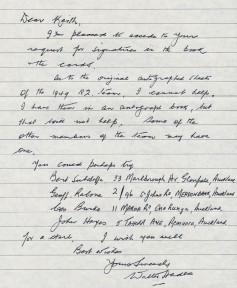 Dear Keith,
I'm pleased to accede to your
request for signatures in the book
& the cards.
As to the original autographed sheets
of the 1949 NZ team, I cannot help.
I have them in an autograph book, but
that will not help. Some of the
other members of the team may have
one.
You could perhaps try
Bert Sutcliffe 33 Marlborough Av. Glenfield, Auckland
Geoff Rabone 2/96 St Johns Rd, Meadowbank, Auckland
Burke 11 Rd, One Tree, Auckland
John Hayes 5 Ave, Remuera, Auckland
for a start. I wish you well
Best Wishes
Yours Sincerely
Walter Hadlee